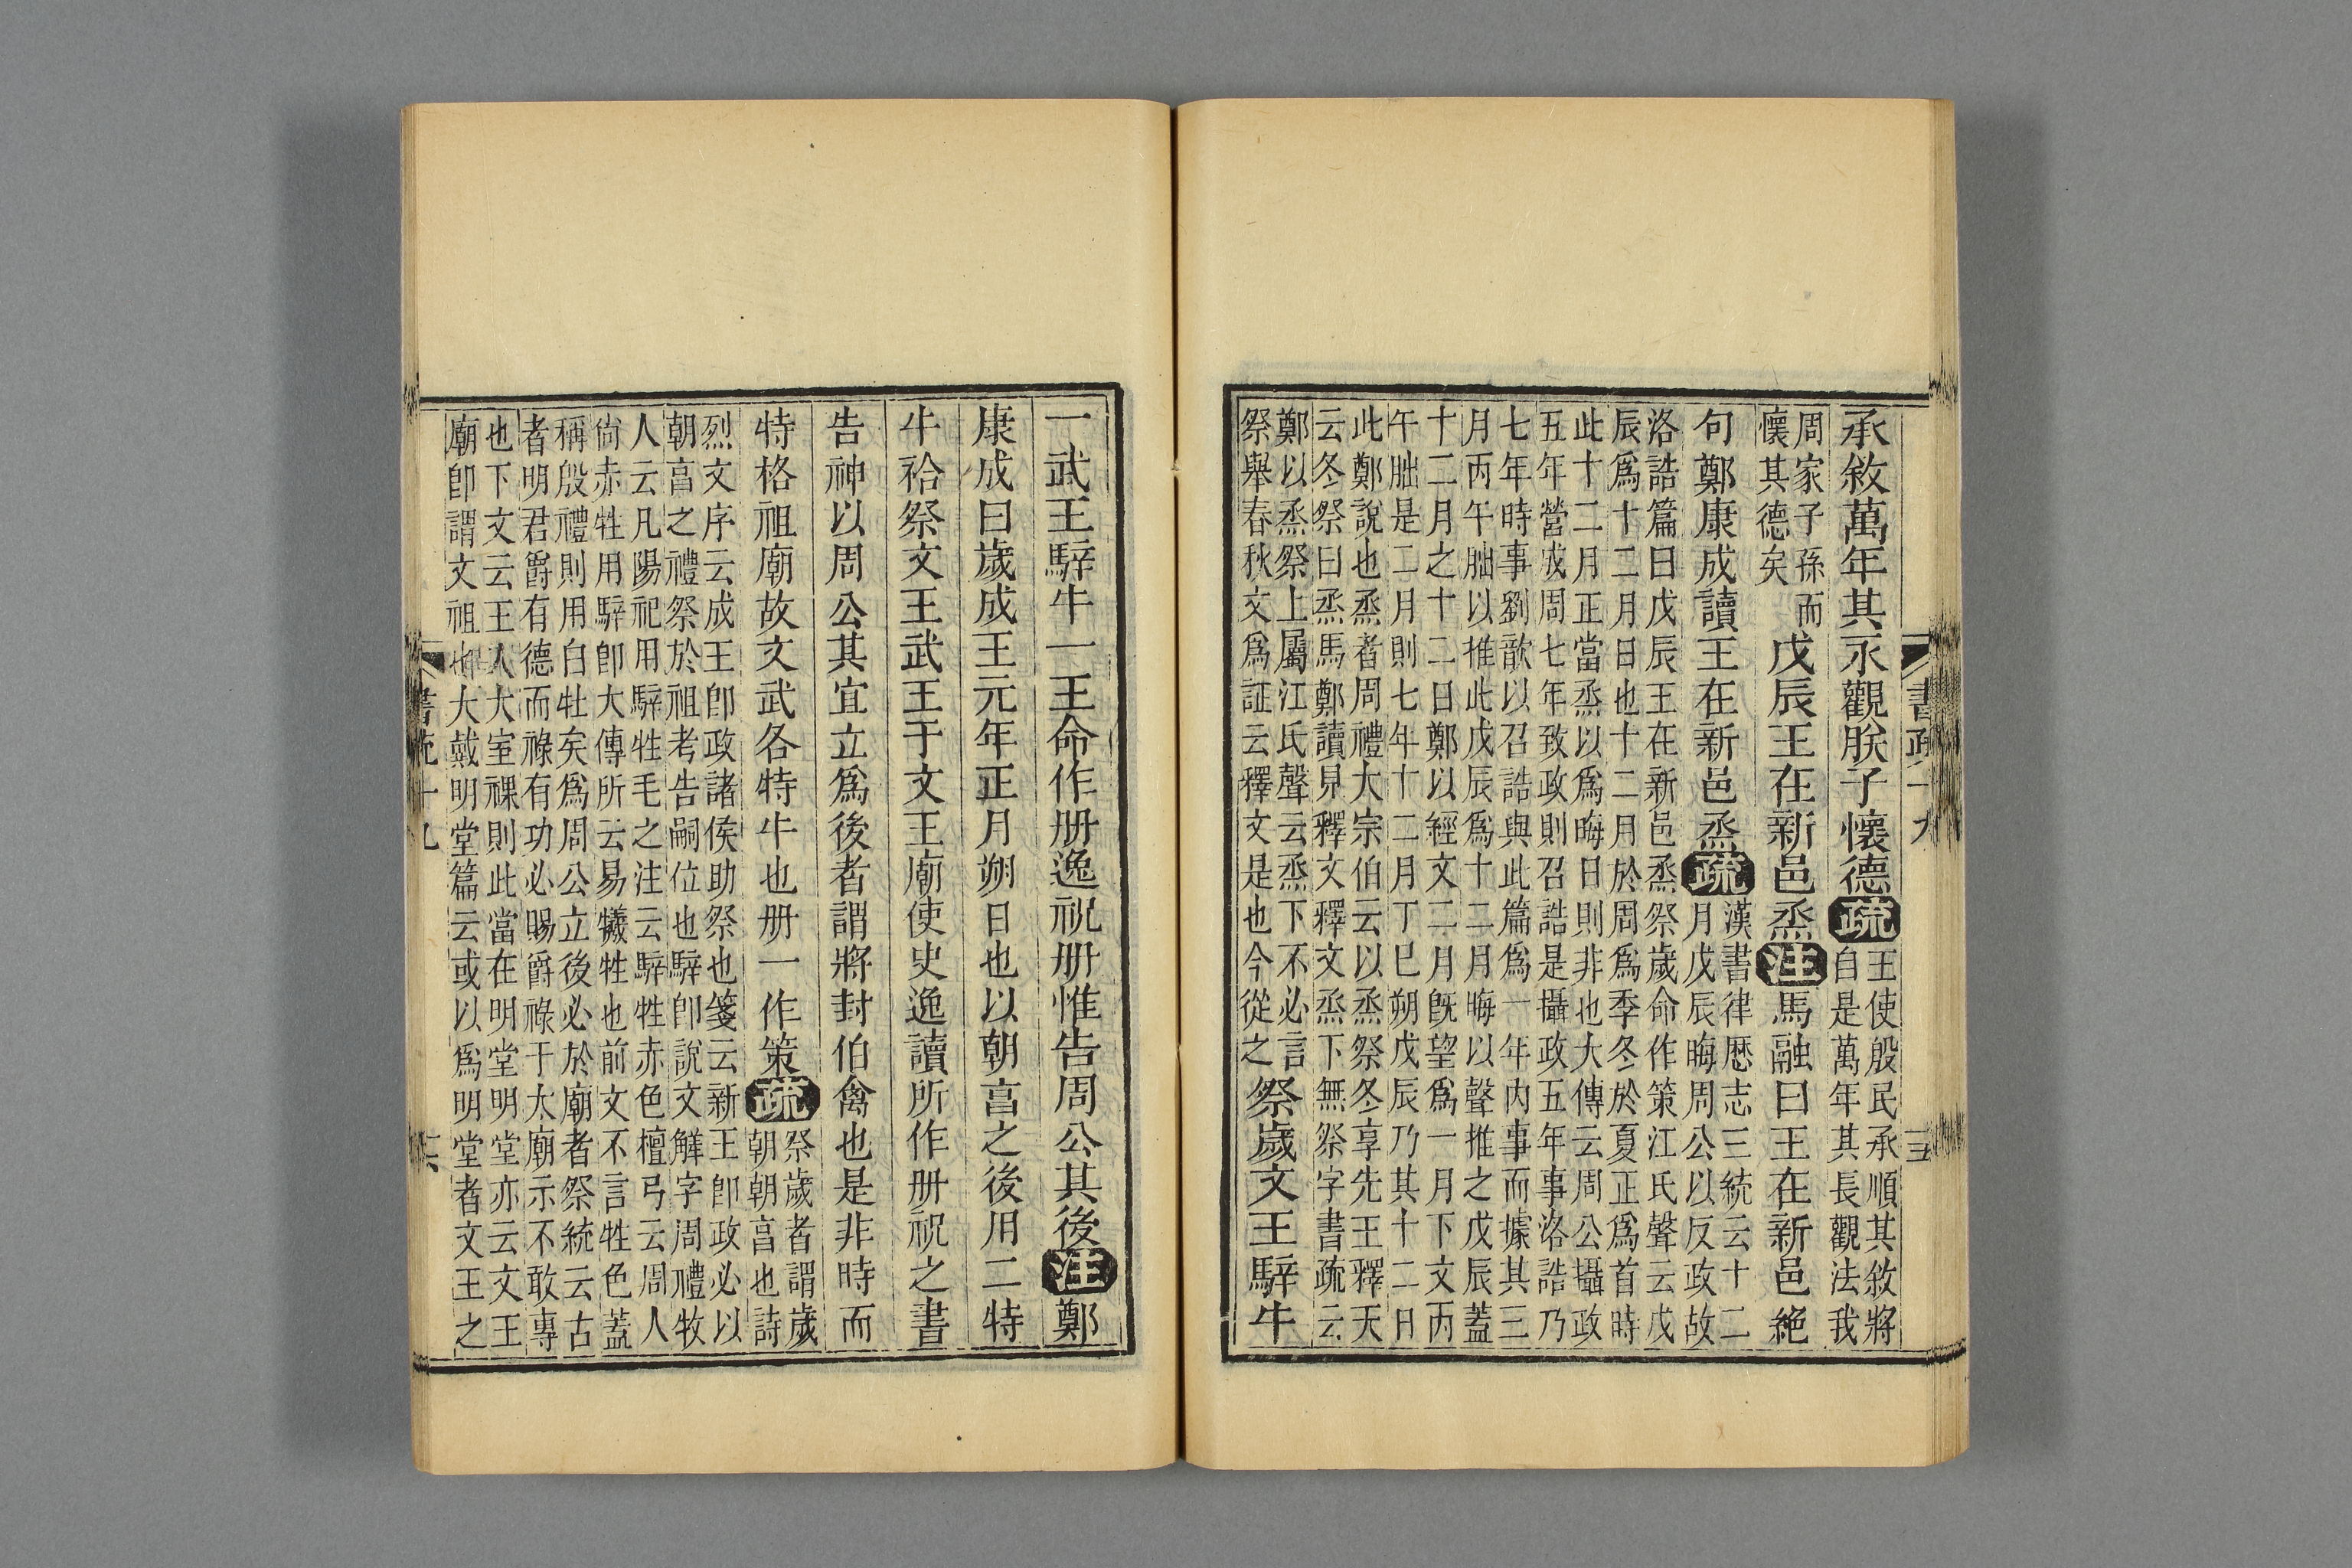 承敘萬年其永觀朕子懷德疏
王使殷民承順其敘將
自是萬年其長觀法我
周家子孫而
懷其德矣
戊辰王在新邑烝注馬融曰王在新邑絶
句鄭康成讀王在新邑烝疏
漢書律歷志三統云十二
月戊辰晦周公以反政故
洛誥篇曰戊辰王在新邑烝祭歲命作策江氏聲云戊
辰爲十二月日也十二月於周爲季冬於夏正爲首時
此十二月正當烝以爲晦日則非也大傳云周公攝政
五年營成周七年致政則召誥是攝政五年事洛誥乃
七年時事劉歆以召誥與此篇爲一年内事而據其三
月丙午朏以推此戊辰爲十二月晦以聲推之戊辰蓋
十二月之十二日鄭以經文二月旣望爲一月下文丙
午朏是二月則七年十二月丁巳朔戊辰乃其十二日
此鄭說也烝者周禮大宗伯云以烝祭冬享先王釋天
云冬祭曰烝馬鄭讀見釋文釋文烝下無祭字書疏云
鄭以烝祭上屬江氏聲云烝下不必言
祭舉春秋文爲証云釋文是也今從之
祭歲文王騂牛
一武王騂牛一王命作册逸祝册惟告周公其後注鄭
康成曰歲成王元年正月朔日也以朝享之後用二特
牛祫祭文王武王于文王廟使史逸讀所作册祝之書
告神以周公其宜立爲後者謂將封伯禽也是非時而
特格祖廟故文武各特牛也册一作策疏
祭歲者謂歲
朝朝享也詩
烈文序云成王卽政諸侯助祭也箋云新王卽政必以
朝享之禮祭於祖考告嗣位也騂卽說文解字周禮牧
人云凡陽祀用騂牲毛之注云騂牲赤色檀弓云周人
尙赤牲用騂卽大傳所云易犧牲也前文不言牲色蓋
稱殷禮則用白牡矣爲周公立後必於廟者祭統云古
者明君爵有德而祿有功必賜爵祿于太廟示不敢專
也下文云王入太室祼則此當在明堂明堂亦云文王
廟卽謂文祖也大戴明堂篇云或以爲明堂者文王之